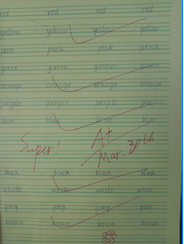 red red red red
yellow yellow yellow yellow
pink pink pink pink
green green green green
orange orange orange orange
purple purple purple purple
blue blue blue blue
Super! A+
Mar. 30th
black black black black
white white white white
gray gray gray gray
brown brown brown brown